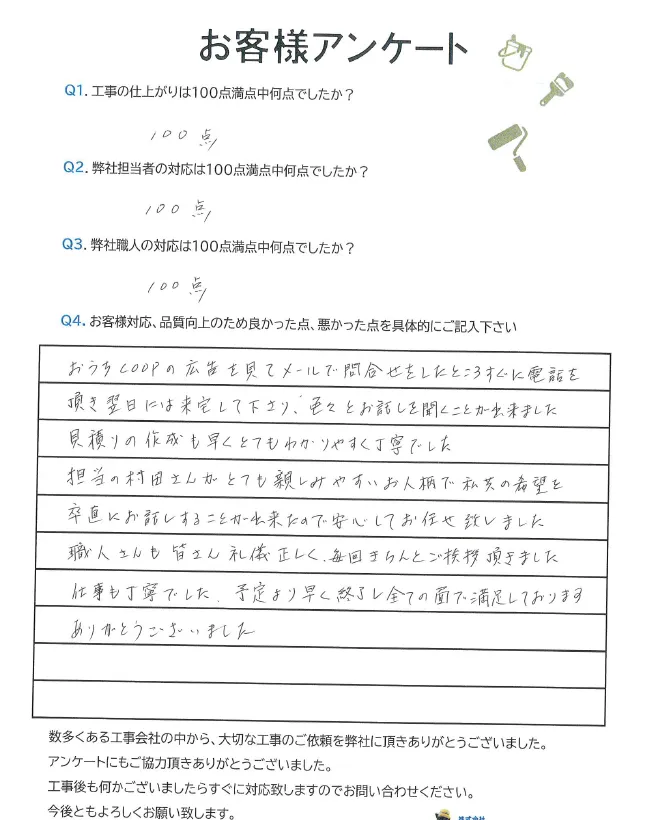 お客様アンケート
Q1. 工事の仕上がりは100点満点中何点でしたか？
100点
Q2. 弊社担当者の対応は100点満点中何点でしたか？
100点
Q3. 弊社職人の対応は100点満点中何点でしたか？
100点
Q4. お客様対応、品質向上のため良かった点、悪かった点を具体的にご記入下さい
おうちLOOPの広告を見てメールで問合せをしたところすぐに電話を
頂き翌日には来宅して下さり、色々とお話しを聞くことが出来ました
見積りの作成も早くとてもわかりやすく丁寧でした
担当の村田さんがとても親しみやすいお人柄で私共の希望を
卒直にお話しすることが出来たので安心してお任せ致しました
職人さんも皆さん礼儀正しく、毎回きちんとご挨拶頂きました
仕事も丁寧でした、予定より早く終了し全ての面で満足しております
ありがとうございました
数多くある工事会社の中から、大切な工事のご依頼を弊社に頂きありがとうございました。
アンケートにもご協力頂きありがとうございました。
工事後も何かございましたらすぐに対応致しますのでお問い合わせください。
今後ともよろしくお願い致します。
株式会社